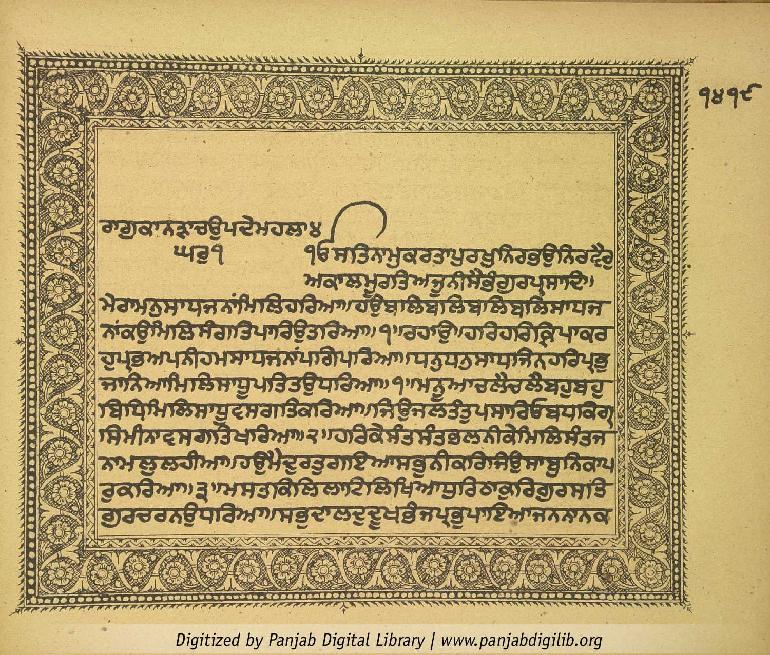 ੧੪੧੯
ਰਾਗੁਕਾਨੜਾਚਉਪਦੇਮਹਲਾ੪
ਘਰੁ੧
੧ਓਸਤਿਨਾਮੁਕਰਤਾਪੁਰਖੁਨਿਰਭਉਨਿਰਵੈਰੁ
ਅਕਾਲਮੂਰਤਿਅਜੂਨੀਸੈਭੰਗੁਰਪ੍ਰਸਾਦਿ॥
ਮੇਰਾਮਨੁਸਾਧਜਨਾਂਮਿਲਿਹਰਿਆ॥ਹਉਬਲਿਬਲਿਬਲਿਬਲਿਸਾਧਜ
ਨਾਂਕਉਮਿਲਿਸੰਗਤਿਪਾਰਿਉਤਰਿਆ॥੧॥ਰਹਾਉ॥ਹਰਿਹਰਿਕ੍ਰਿਪਾਕਰ
ਹੁਪ੍ਰਭਅਪਨੀਹਮਸਾਧਜਨਾਂਪਗਿਪਰਿਆ॥ਧਨੁਧਨੁਸਾਧਜਿਨਹਰਿਪ੍ਰਭੁ
ਜਾਨਿਆਮਿਲਿਸਾਧੂਪਤਿਤਉਧਰਿਆ॥੧॥ਮਨੂਆਚਲੈਚਲੈਬਹੁਬਹੁ
ਬਿਧਿਮਿਲਿਸਾਧੂਵਸਗਤਿਕਰਿਆ॥ਜਿਉਜਲਤੰਤੁਪਸਾਰਿਓਬਧਕਿਗ੍ਰ
ਸਿਮੀਨਾਵਸਗਤਿਖਰਿਆ॥੨॥ਹਰਿਕੇਸੰਤਸੰਤਭਲਨੀਕੇਮਿਲਿਸੰਤਜ
ਨਾਮਲੁਲਹੀਆ॥ਹਉਮੈਦੁਰਤੁਗਇਆਸਭੁਨੀਕਰਿਜਿਉਸਾਬੁਨਿਕਾਪ
ਰੁਕਰਿਆ॥੩॥ਮਸਤਕਿਲਿਲਾਟਿਲਿਖਿਆਧੁਰਿਠਾਕੁਰਿਗੁਰਸਤਿ
ਗੁਰਚਰਨਉਧਰਿਆ॥ਸਭੁਦਾਲਦੁਦੂਖਭੰਜਪ੍ਰਭੁਪਾਇਆਜਨਨਾਨਕ
Digitized by Panjab Digital Library | www.panjabdigilib.org